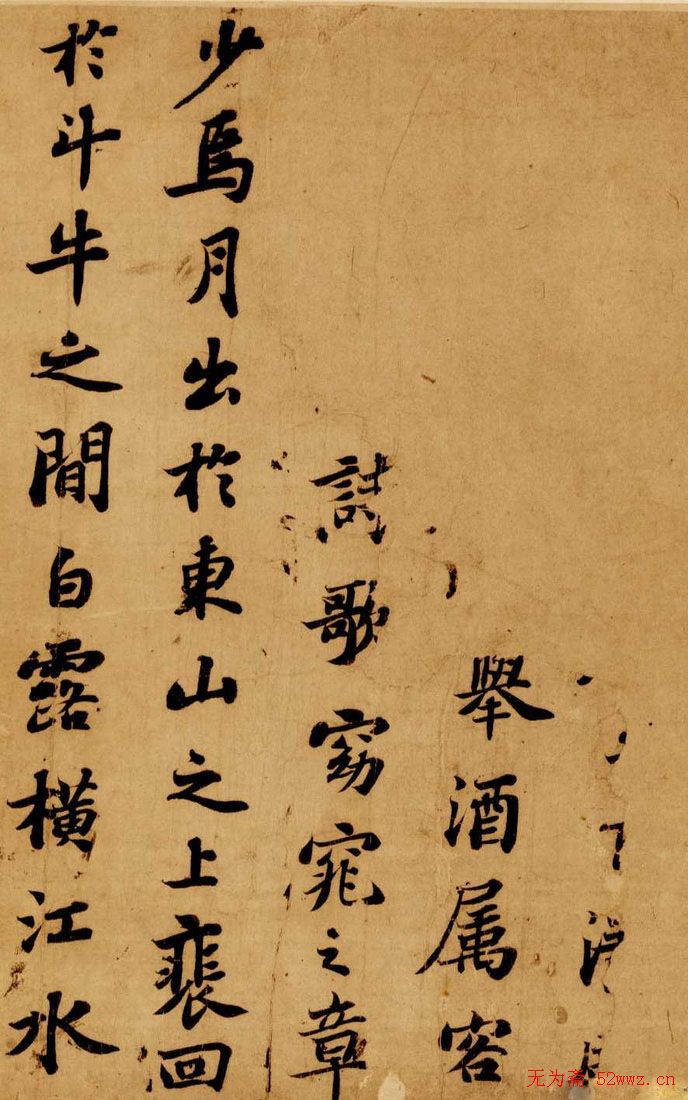 舉酒属客
歌窈窕之章
少焉月出於東山之上裴回
於斗牛之間白露橫江水
无为斋 52wwz.cn